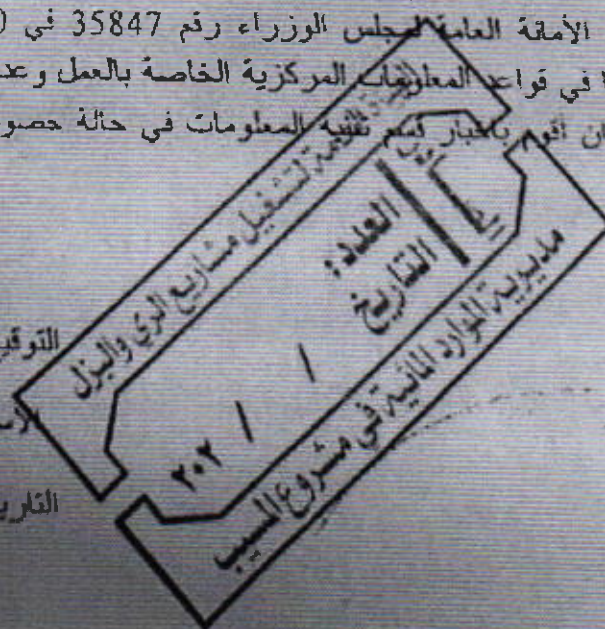 الأمانة العامة لمجلس الوزراء رقم 35847 في
في قواعد المعلومات المركزية الخاصة بالعمل وعد
ان اقوم باخبار قسم تقنية المعلومات في حالة حصو
العامة لتشغيل مشاريع الري والبزل
العدد:
التاريخ
/ / ٢٠٢
مديرية الموارد المائية في مشروع المسيب
التوقي
الاس
التاري